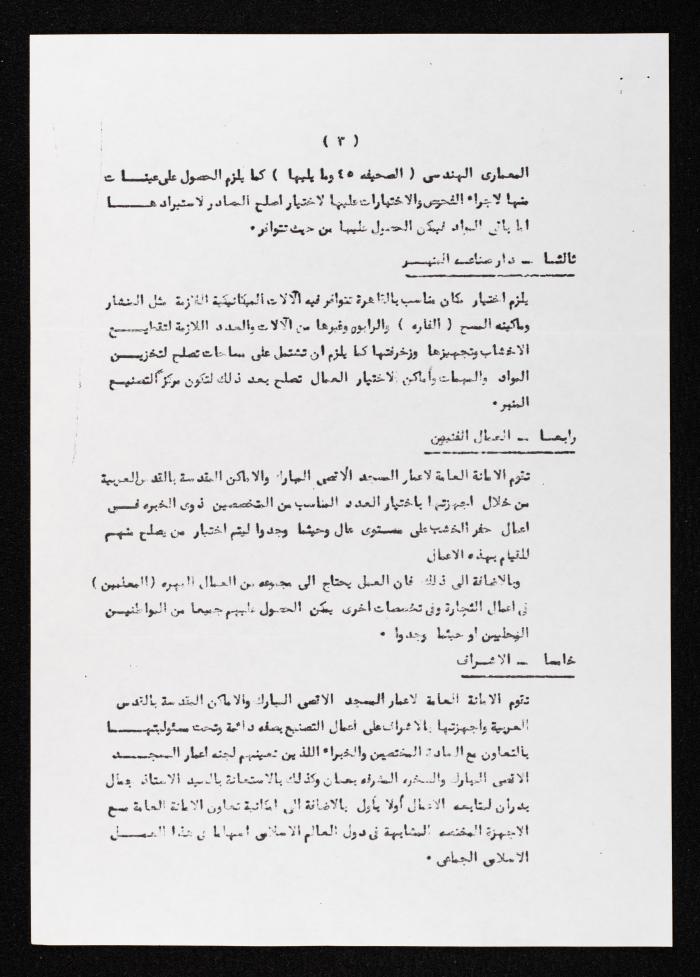 ( ٣ )
المعمارى الهندسى ( الصحيفه ٤٥ وما يليها ) كما يلزم الحصول على عينات
منها لاجراء الفحوص والاختيارات عليها لاختيار اصلح المصادر لاستيرادها
اما باقى المواد فيمكن الحصول عليها من حيث تتوافر ٠
ثالثا - دار صناعه المنبر
يلزم اختيار مكان مناسب بالقاهرة تتوافر فيه الآلات الميكانيكية اللازمة مثل المنشار
وماكينه المسح ( الفاره ) والرابوه وغيرها من الآلات والعدد اللازمة لتقطيع
الاخشاب وتجهيزها وزخرفتها كما يلزم ان تشتمل على مساحات تصلح لتخزين
المواد والمهمات وأماكن لاختيار العمال تصلح بعد ذلك لتكون مركز لتصنيع
المنبر ٠
رابعا - العمال الفنيين
تقوم الامانة العامة لاعمار المسجد الاقصى المبارك والاماكن المقدسة بالقدس العربية
من خلال اجهزتها باختيار العدد المناسب من المتخصصين ذوى الخبره فى
اعمال حفر الخشب على مستوى عال وحيثما وجدوا ليتم اختبار من يصلح منهم
للقيام بهذه الاعمال
وبالاضافة الى ذلك فان العمل يحتاج الى مجموعه من العمال المهره (المعلمين )
فى اعمال النجارة وفى تخصصات اخرى يمكن الحصول عليهم جميعا من المواطنين
المحليين او حيثما وجدوا ٠
خامسا - الاشراف
تقوم الامانة العامة لاعمار المسجد الاقصى المبارك والاماكن المقدسة بالقدس
العربية واجهزتها بالاشراف على اعمال التصنيع بصفه دائمة وتحت مسئوليتها
بالتعاون مع السادة المختصين والخبراء اللذين تعينهم لجنه اعمار المسجد
الاقصى المبارك والصخره المشرفه بعمان وكذلك بالاستعانة بالسيد الاستاذ جمال
بدران لمتابعه الاعمال أولا بأول بالاضافة الى امكانية تعاون الامانة العامة مع
الاجهزة المختصه المشابهة فى دول العالم الاسلامى اسهاما فى هذا العمل
الاسلامى الجماعى ٠